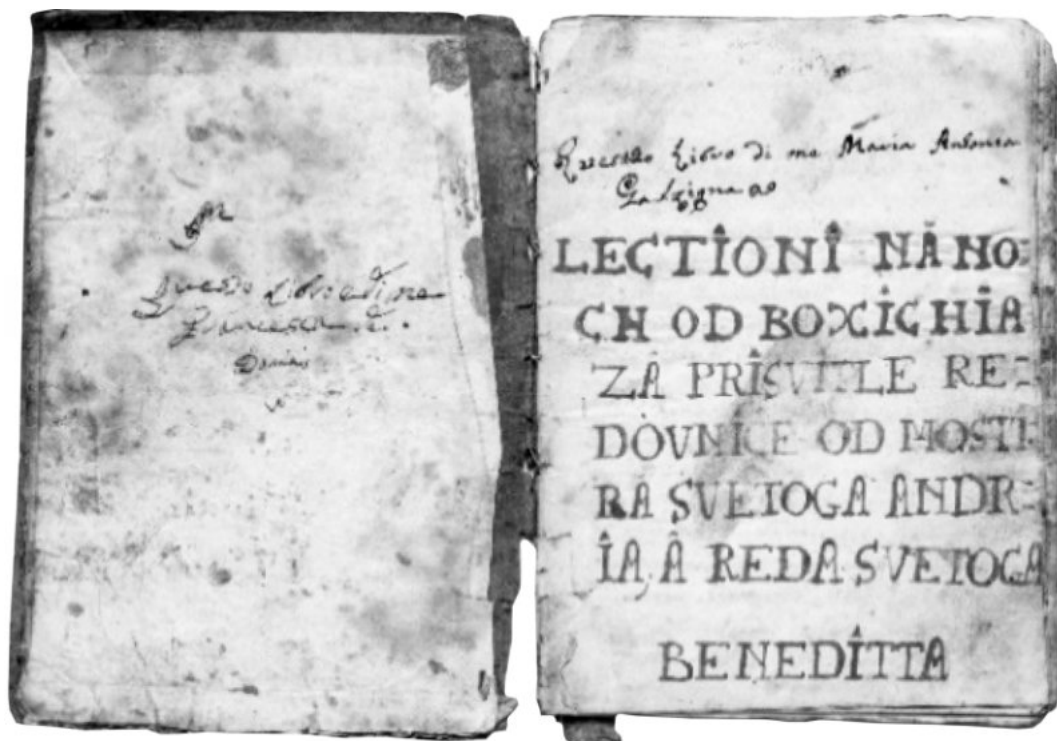 Questo Libro di me
Francesca
Questo Libro di me Maria Antonia
Galzigna
LECTÎONÎ NÂ NO=
CH OD BOXÎCHÎA
ZÂ PRÎSVITLE RE=
DÒVNICE OD MOSTI
RA SVETOGA ANDR=
ÎA, Â REDA SVETOGA
BENEDÎTTA